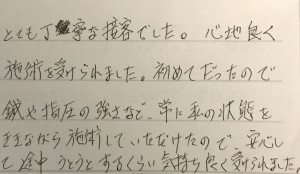 とても丁寧な接客でした。心地良く
施術を受けられました。初めてだったので
鍼や指圧の強さなど、常に私の状態を
ききながら施術していただけたので、安心し
て途中うとうとするくらい気持ち良く受けられました。